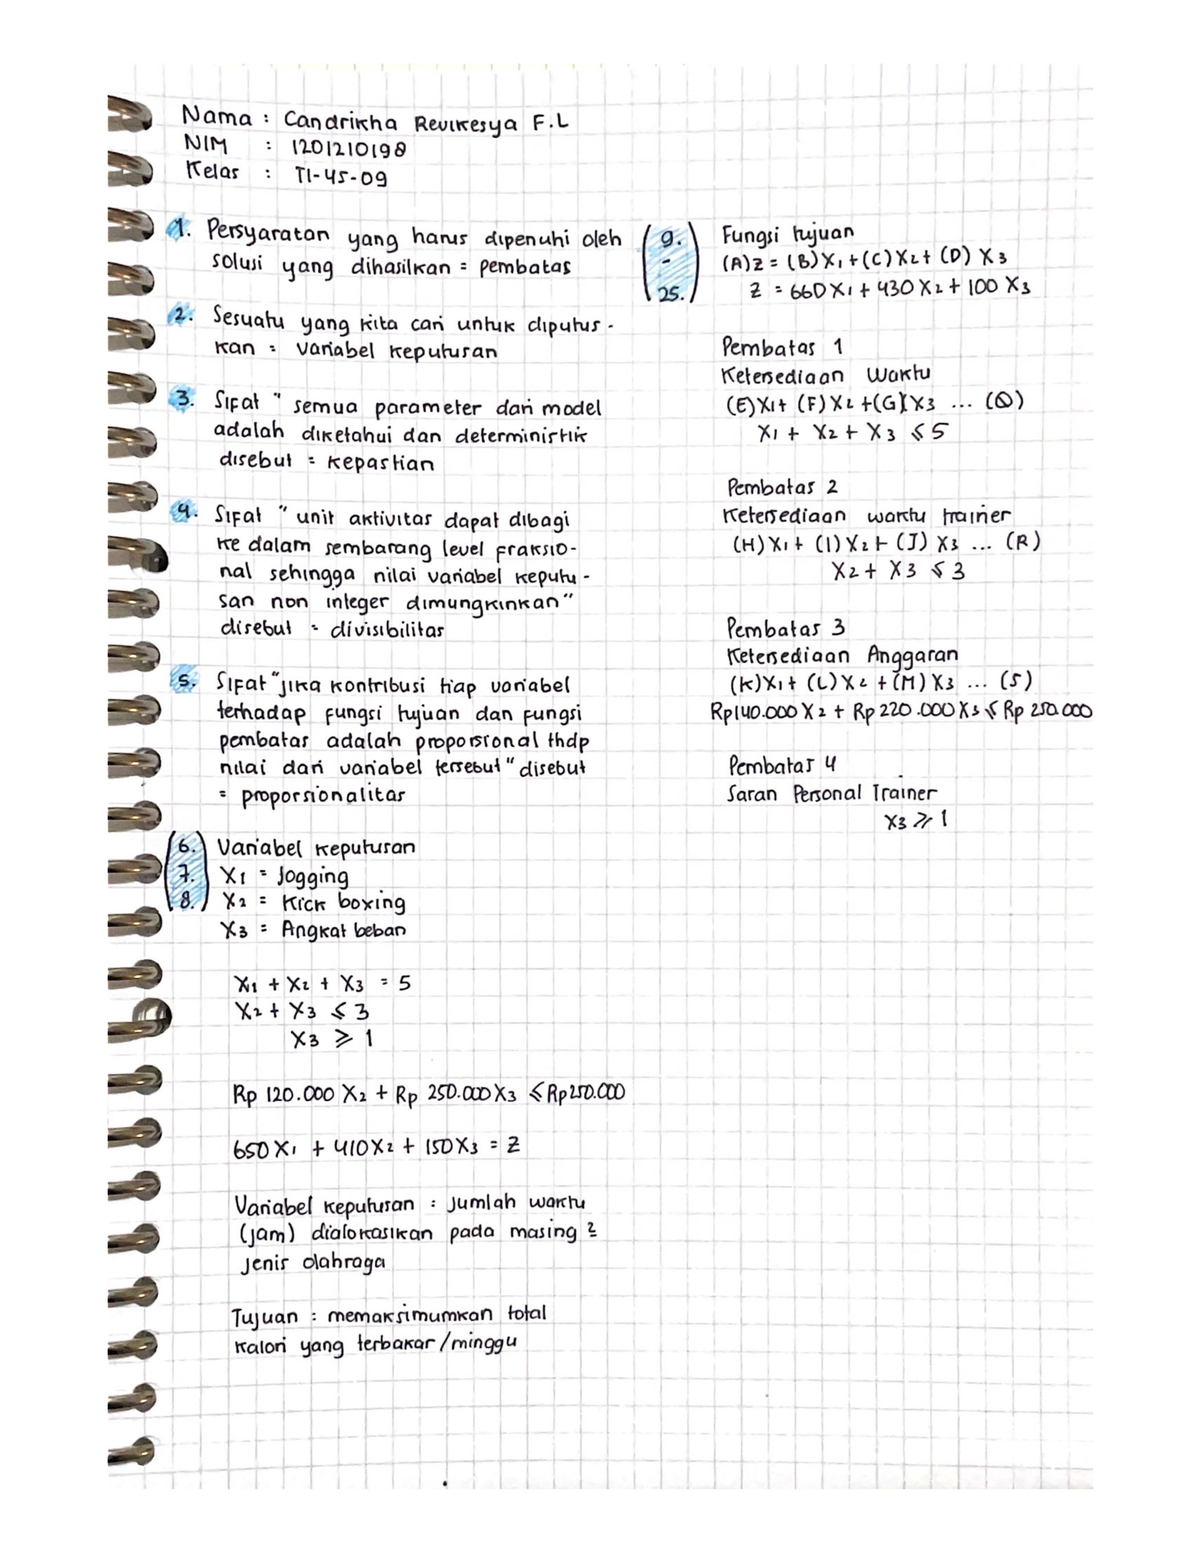 Nama : Candrikha Revikesya F.L
NIM : 1201210198
Kelas : TI-45-09
1. Persyaratan yang harus dipenuhi oleh
solusi yang dihasilkan = pembatas
2. Sesuatu yang kita cari untuk diputus-
kan = variabel keputusan
3. Sifat " semua parameter dari model
adalah diketahui dan deterministik
disebut = kepastian
4. Sifat " unit aktivitas dapat dibagi
ke dalam sembarang level fraksio-
nal sehingga nilai variabel keputu-
san non integer dimungkinkan"
disebut = divisibilitas
5. Sifat "jika kontribusi tiap variabel
terhadap fungsi tujuan dan fungsi
pembatas adalah proporsional thdp
nilai dari variabel tersebut" disebut
= proporsionalitas
6. Variabel keputusan
7. X1 = Jogging
8. X2 = Kick boxing
X3 = Angkat beban
X1 + X2 + X3 = 5
X2 + X3 ≤ 3
X3 ≥ 1
Rp 120.000 X2 + Rp 250.000 X3 ≤ Rp 250.000
650 X1 + 410 X2 + 150 X3 = Z
Variabel keputusan : jumlah waktu
(jam) dialokasikan pada masing 2
jenis olahraga
Tujuan : memaksimumkan total
kalori yang terbakar / minggu
9. - 25. Fungsi tujuan
(A) Z = (B) X1 + (C) X2 + (D) X3
Z = 660 X1 + 430 X2 + 100 X3
Pembatas 1
Ketersediaan Waktu
(E) X1 + (F) X2 + (G) X3 ... (Q)
X1 + X2 + X3 ≤ 5
Pembatas 2
Ketersediaan waktu trainer
(H) X1 + (I) X2 + (J) X3 ... (R)
X2 + X3 ≤ 3
Pembatas 3
Ketersediaan Anggaran
(K) X1 + (L) X2 + (M) X3 ... (S)
Rp 140.000 X2 + Rp 220.000 X3 ≤ Rp 250.000
Pembatas 4
Saran Personal Trainer
X3 ≥ 1